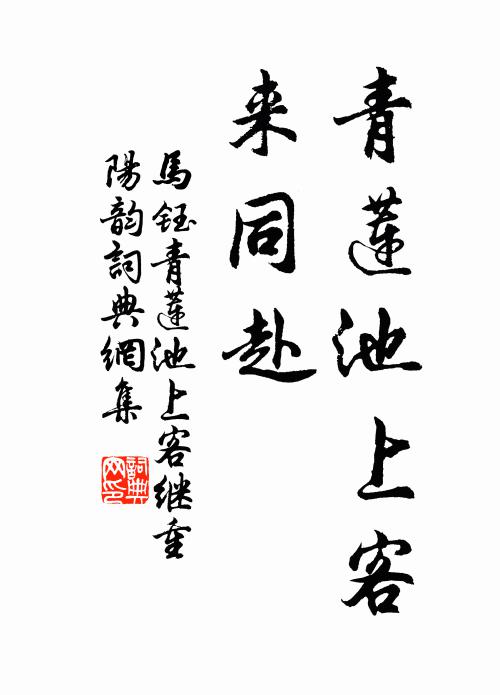 青蓮池上客
来同赴
馬鈺青蓮池上客继重
陽韵詞典網集
詞典
网印